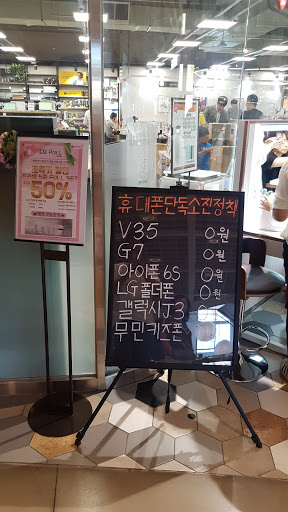 LG PraL
50%
휴대폰단독소진정책
V35 0원
G7 0원
아이폰 6S 0원
LG폴더폰 0원
갤럭시J3 0원
무민키즈폰